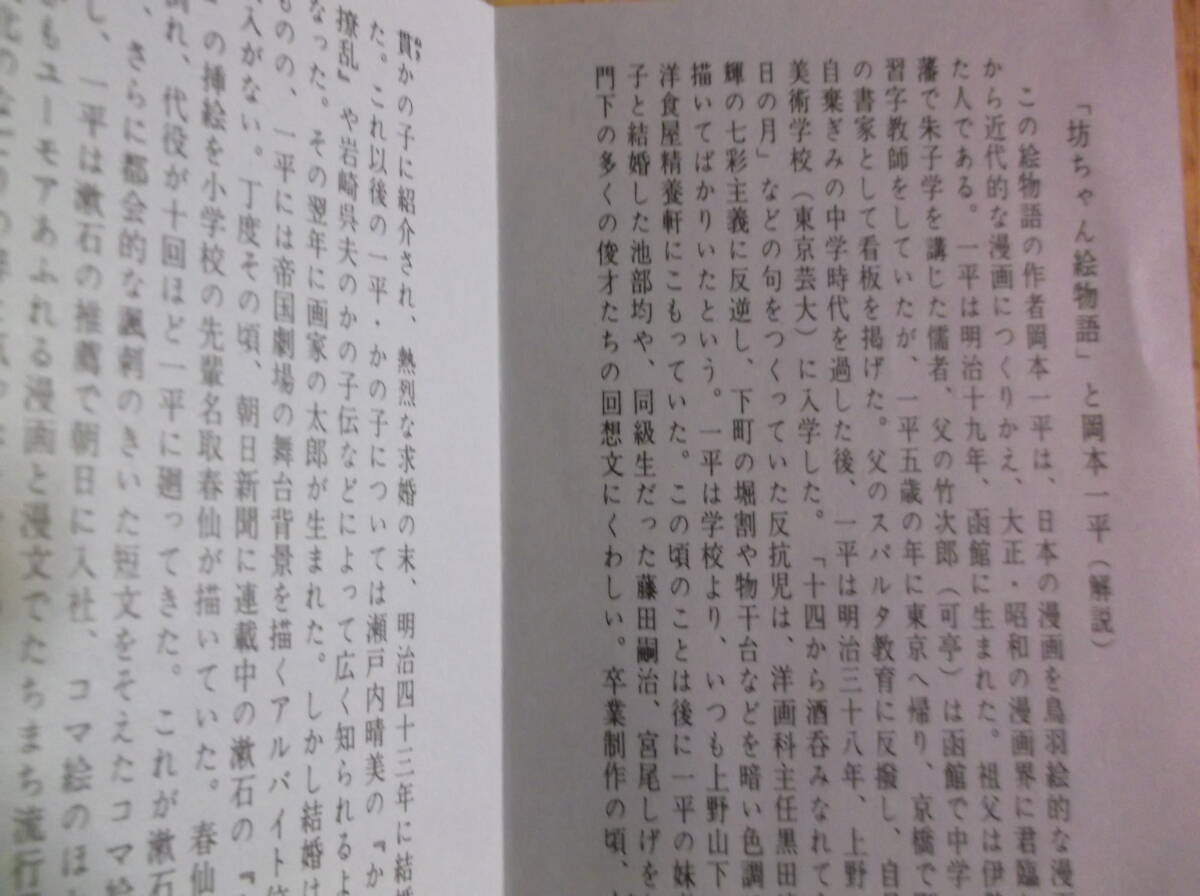 「坊ちゃん絵物語」と岡本一平(解説)
この絵物語の作者岡本一平は、日本の漫画を鳥羽絵的な漫
から近代的な漫画につくりかえ、大正・昭和の漫画界に君臨
た人である。一平は明治十九年、函館に生まれた。祖父は伊
藩で朱子学を講じた儒者、父の竹次郎(可亭)は函館で中学
習字教師をしていたが、一平五歳の年に東京へ帰り、京橋で
の書家として看板を掲げた。父のスパルタ教育に反撥し、自
自棄ぎみの中学時代を過した後、一平は明治三十八年、上野
美術学校(東京芸大)に入学した。「十四から酒呑みなれて
日の月」などの句をつくっていた反抗児は、洋画科主任黒田
輝の七彩主義に反逆し、下町の堀割や物干台などを暗い色調
描いてばかりいたという。一平は学校より、いつも上野山下
洋食屋精養軒にこもっていた。この頃のことは後に一平の妹
子と結婚した池部均や、同級生だった藤田嗣治、宮尾しげを
門下の多くの俊才たちの回想文にくわしい。卒業制作の頃、
貫かの子に紹介され、熱烈な求婚の末、明治四十三年に結婚
た。これ以後の一平・かの子については瀬戸内晴美の『か
撩乱』や岩崎呉夫のかの子伝などによって広く知られるよ
なった。その翌年に画家の太郎が生まれた。しかし結婚は
ものの、一平には帝国劇場の舞台背景を描くアルバイト
入がない。丁度その頃、朝日新聞に連載中の漱石の『
』の挿絵を小学校の先輩名取春仙が描いていた。春仙
倒れ、代役が十回ほど一平に廻ってきた。これが漱石
、さらに都会的な諷刺のきいた短文をそえたコマ絵
し、一平は漱石の推薦で朝日に入社、コマ絵のほ
もユーモアあふれる漫画と漫文でたちまち流行